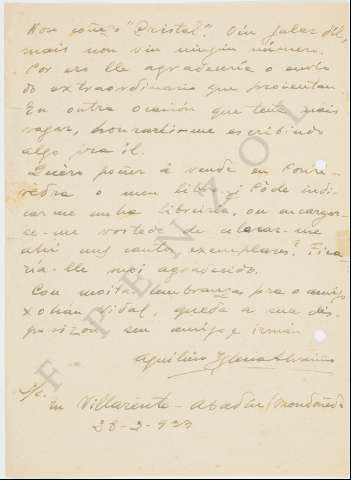 Non coñezo "Cristal". Oín falar dil,
mais non vin ningún número.
Por eso lle agradecería o envío
do extraordinario que proieutan.
En outra ocasión que teña mais
vagar, honrareime escribindo
algo pra il.
Quero poñer á venda en Ponte-
vedra o meu libro. ¿Pode indi-
carme unha librería, ou encargar-
se vostede de colocar-me
ahí uns cantos exemplares? Fica-
ría-lle moi agradecido.
Con moitas lembranzas pra o amigo
Xohan Vidal, queda a sua dis-
posizón seu amigo e irmán
Aquilino Iglesia Alvariño
S/c.
en Villarente - Abadín (Mondoñedo
28-3-933
F PENZOL